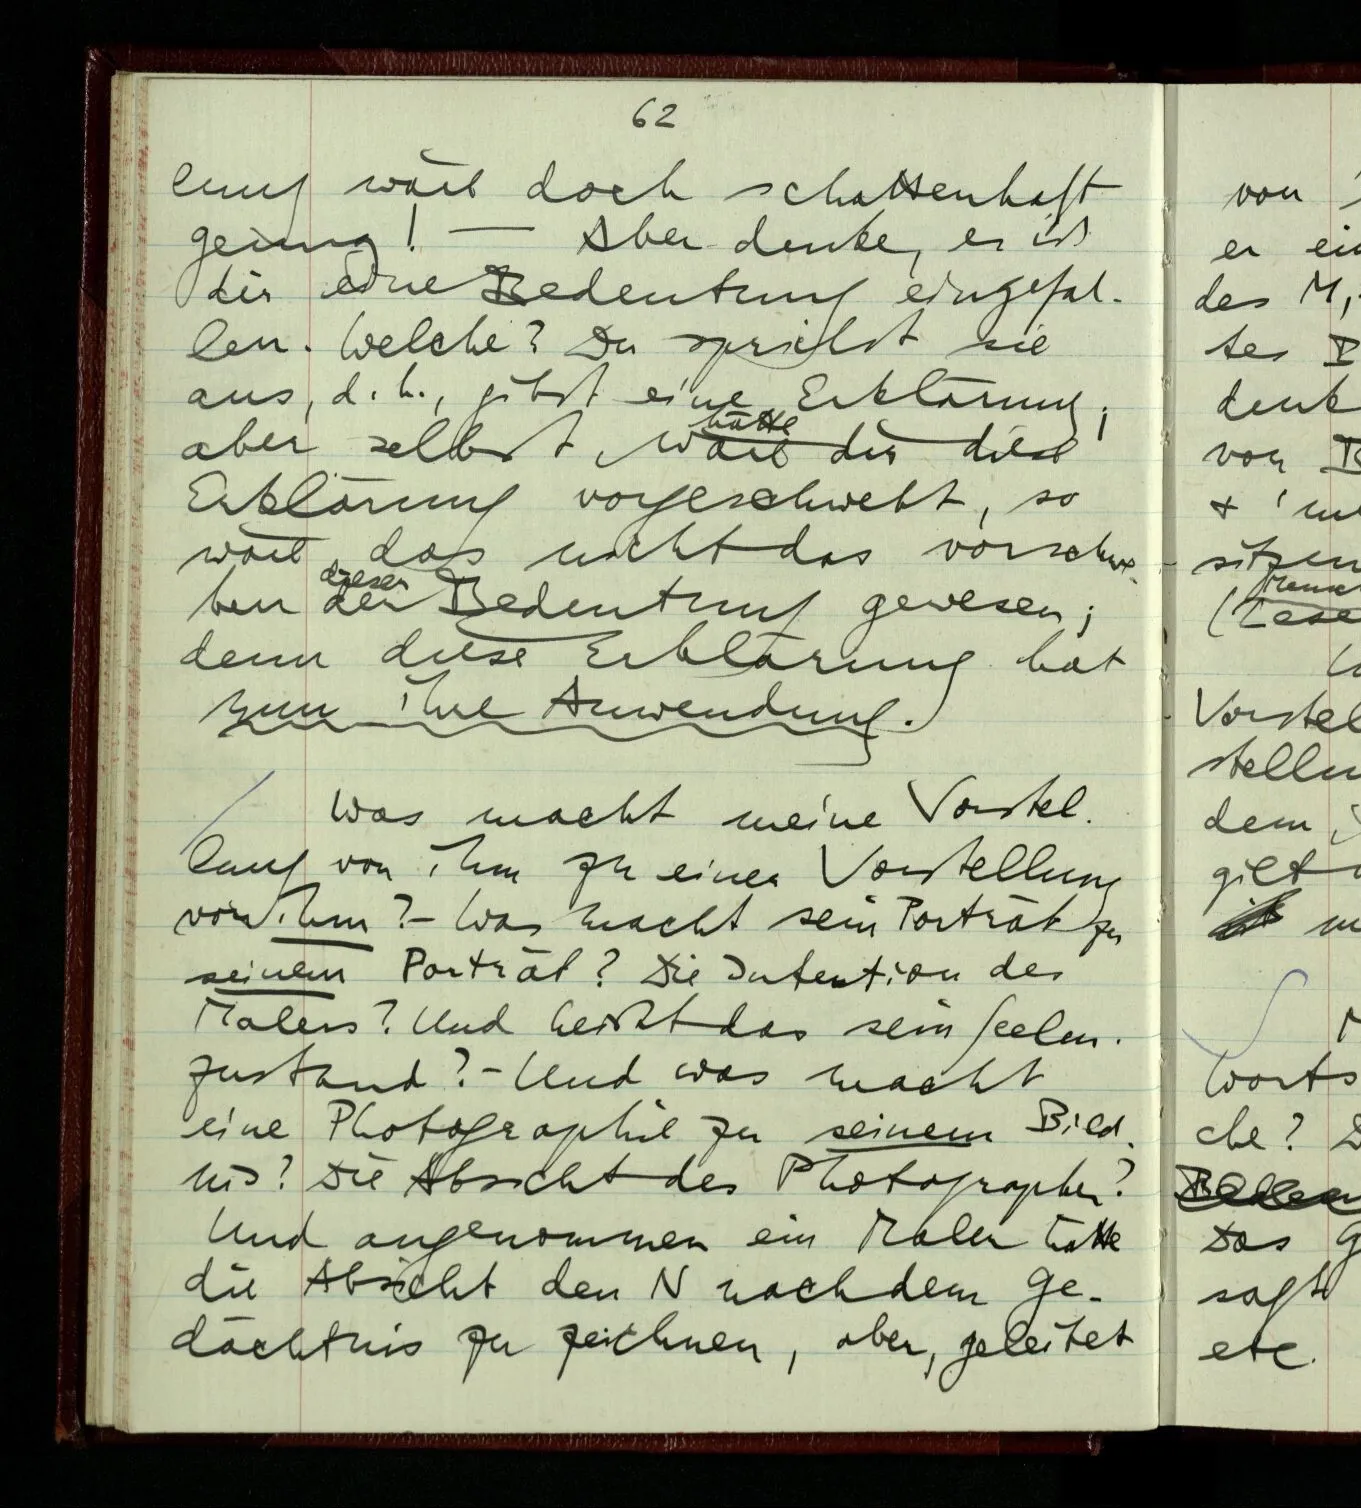 62
lung wäre doch schattenhaft
genug! — Aber denke, es ist
dir eine Bedeutung eingefal-
len. Welche? Du sprichst sie
aus, d.h., gibst eine Erklärung;
hätte
aber selbst wäre dir diese
Erklärung vorgeschwebt, so
wäre das nicht das vorschwe-
dieser
ben der Bedeutung gewesen;
denn diese Erklärung hat
nun ihre Anwendung.
Was macht meine Vorstel-
lung von ihm zu einer Vorstellung
von ihm? – Was macht sein Porträt zu
seinem Porträt? Die Intention des
Malers? Und heißt das sein Seelen-
zustand? – Und was macht
eine Photographie zu seinem Bild-
nis? Die Absicht des Photographen?
Und angenommen ein Maler hätte
die Absicht den N nach dem Ge-
dächtnis zu zeichnen, aber, geleitet
von
er ein
des M,
tes
denk
von
+ 'un
sitzen
(Lese
Vorstel
stellun
dem
gilt
Worts
che? D
Das G
sagt
etc.